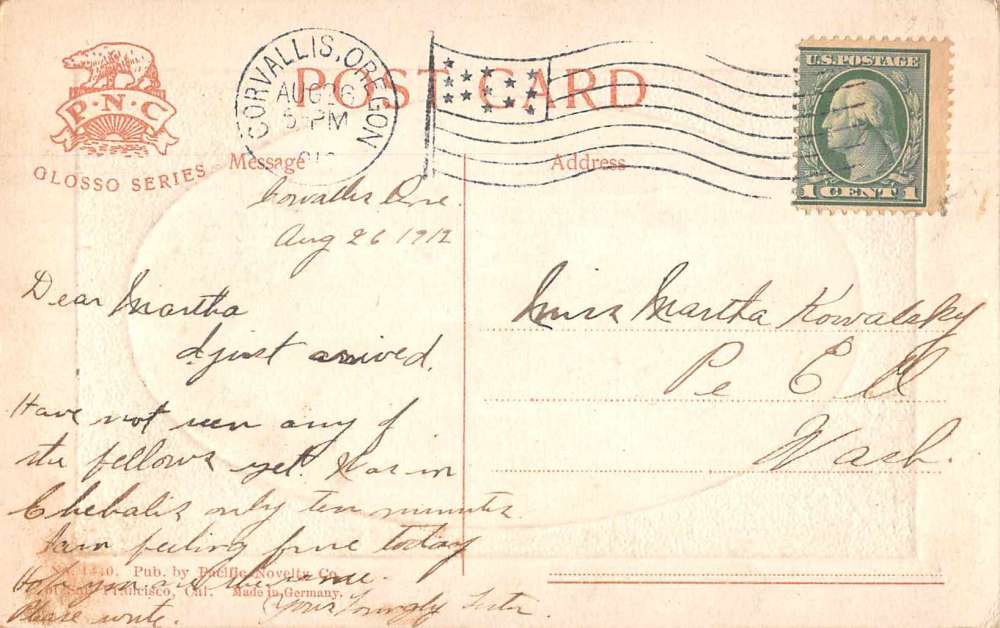 P·N·C
GLOSSO SERIES
POST CARD
CORVALLIS, OREGON
AUG 26
5 PM
U.S. POSTAGE
1 CENT 1
Message
Address
Corvallis Ore.
Aug 26 1912
Dear Martha
I just arrived.
Have not seen any of
the fellows yet. Was in
Chehalis only ten minutes.
I am feeling fine today
Hope you are the same.
Please write.
Your lovingly Sister
Miss Martha Kowalsky
Pe Ell
Wash.
Pub. by Pacific Novelty Co.
San Francisco, Cal. Made in Germany.